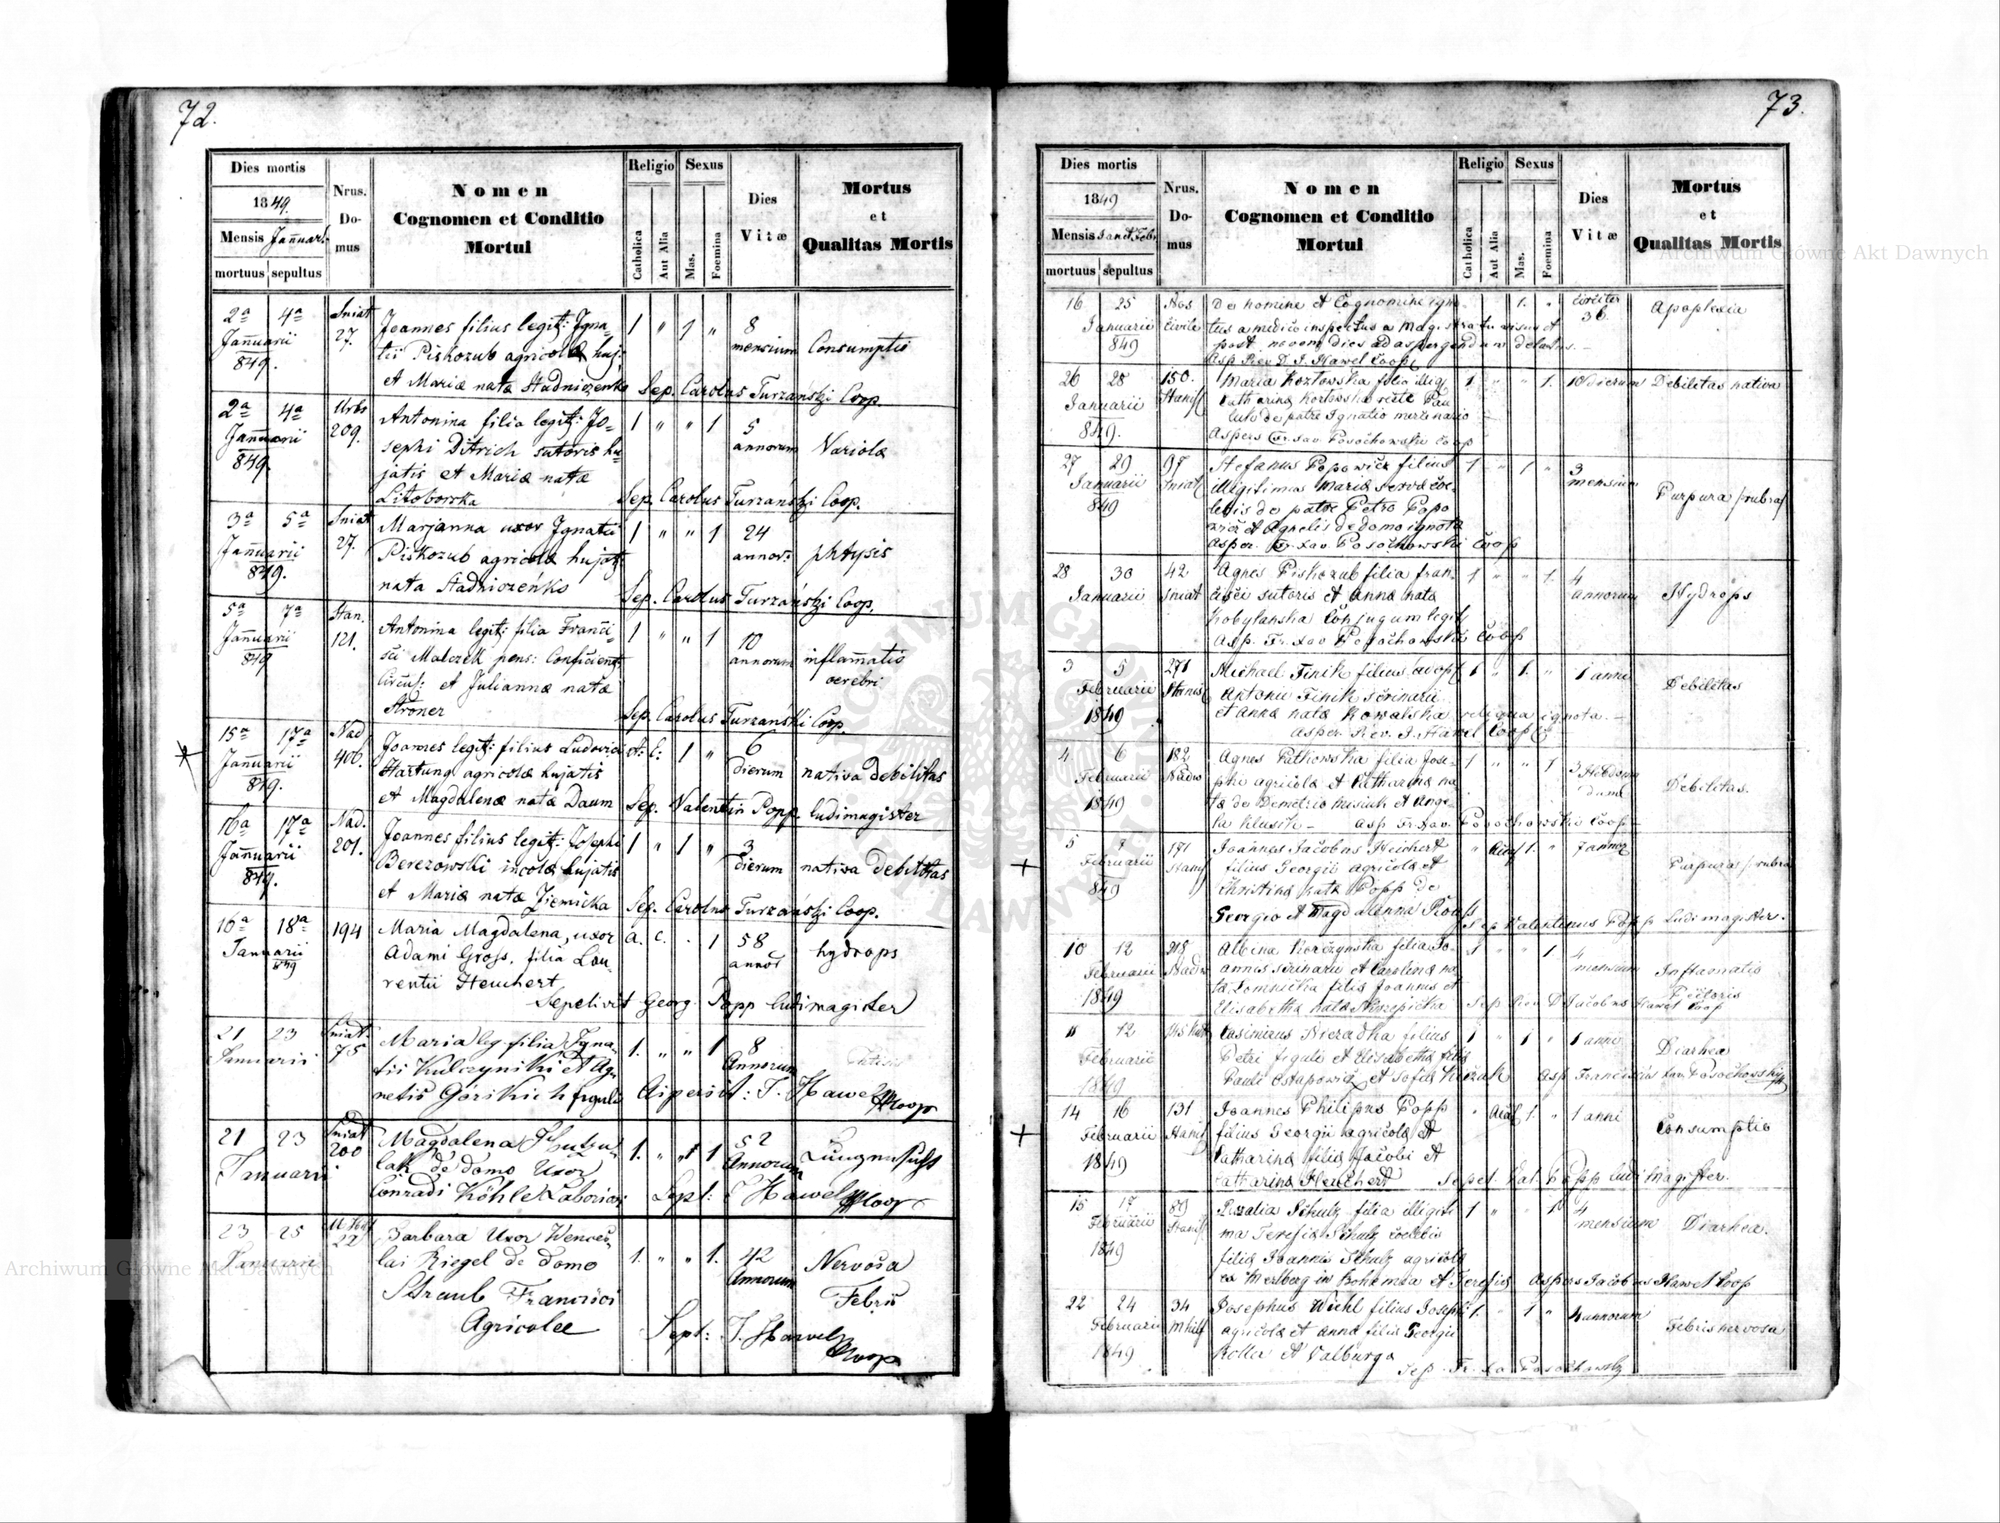 72.
Dies mortis
1849.
Mensis Januarii
mortuus sepultus
Nrus. Domus
Nomen
Cognomen et Conditio
Mortui
Religio
Catholica
Aut Alia
Sexus
Mas.
Foemina
Dies
Vitæ
Mortus
et
Qualitas Mortis
2a 4a Sniat
Januarii 27.
849.
Joannes filius legit: Igna-
tii Piskozub agricolæ huj:
et Mariæ nata Stadniczenko
1 " 1 "
8
mensium
Consumptio
Sep. Carolus Turzański Coop.
2a 4a Urbs
Januarii 209.
849.
Antonina filia legit: Jo-
sephi Ditrich sutoris hu-
jatis et Mariæ nata
Litoborska
1 " " 1
5
annorum
Variola
Sep. Carolus Turzański Coop.
3a 5a Sniat
Januarii 27.
849.
Marjanna uxor Ignatii
Piskozub agricolæ hujat:
nata Stadniczeńko
1 " " 1
24
annor:
phtysis
Sep. Carolus Turzański Coop.
5a 7a Stan.
Januarii 121.
849
Antonina legit: filia Franci-
sci Malczek pens:
et Juliannæ nata
Stroner
1 " " 1
10
annorum
inflamatio
cerebri
Sep. Carolus Turzański Coop.
15a 17a Nad
Januarii 406.
849.
Joannes legit: filius Ludovici
Hartung agricolæ hujatis
et Magdalenæ nata Daum
A. C. 1 "
6
dierum
nativa debilitas
Sep. Valentin Popp. ludimagister
16a 17a Nad.
Januarii 201.
849.
Joannes filius legit: Josephi
Berezowski incolæ hujatis
et Mariæ nata Ziemicka
1 " 1 "
3
dierum
nativa debilitas
Sep. Carolus Turzański Coop.
16a 18a 194
Januarii
849
Maria Magdalena, uxor
Adami Gross, filia Lau-
rentii Heuchert
a. c. . 1
58
annor
hydrops
Sepelivit Georg Popp ludimagister
21 23 Sniat.
Januarii 75
Maria leg filia Igna-
tii Kulczynski et Ag-
netis Górskich figuli
1. " " 1
8
Annorum
Aspersit: J. Hawel Coop
21 23 Sniat
Januarii 200
Magdalena
de domo Uxor
Conradi Köhle Laborioso
1. " " 1
52
Annorum
Lungensucht
Sept: J Hawel Coop
23 25
Januarii 22
Barbara Uxor Wences-
lai Riegel de domo
Straub Francisci
Agricolæ
1. " " 1.
42
Annorum
Nervosa
Febris
Sept: J. Hawel
Coop
73.
Dies mortis
1849
Mensis Jan et Feb.
mortuus sepultus
Nrus. Domus
Nomen
Cognomen et Conditio
Mortui
Religio
Catholica
Aut Alia
Sexus
Mas.
Foemina
Dies
Vitæ
Mortus
et
Qualitas Mortis
16 25
Januarii
849
De nomine et Cognomine igno-
tus a medico inspectus a magistratu visus et
post novem dies ad aspergendum delatus. -
Asp Rev. D. J. Hawel Coop
1. "
circiter
36.
Apoplexia
26 28 150.
Januarii Stanis
849.
Maria Kozłowska filia illig.
Catharina Kozłowska
de patre Ignatio mercenario
Aspers Fr. Xav. Posochowski Coop
1 " " 1.
10 dierum
Debilitas nativa
27 29 97
Januarii Sniat
849
Stefanus Popowicz filius
illigitimus Mariæ servæ cœ-
lebis de patre Petro Popo
wicz et Agnetis de domo ignota
Asper. Fr. Xav. Posochowski Coop
1 " 1 "
3
mensium
Purpura /:rubra/
28 30 42
Januarii Sniat
Agnes Piskozub filia Fran-
cisci sutoris et Anna nata
Kobylanska Conjugum legit
Asp. Fr. Xav Posochowski Coop
1 " " 1.
4
annorum
Hydrops
3 5 271
Februarii Stanis
1849
Michael Finik filius adopt
Antonii Finik
et Anna nata Kowalska reliqua ignota. -
Asper. Rev. J. Hawel Coop
1 " 1. "
1 anni
Debilitas
4 6 182
Februarii Nadw
1849
Agnes Petkowska filia Jose-
phi agricolæ et Katharina na-
ta de Demetrio et Ange-
la - Asp Fr. Xav. Posochowski Coop -
1 " " 1
3 Hebdom
Debilitas.
5 7 171
Februarii Stanis
849
Joannes Jacobus Heichert
filius Georgii agricolæ et
Christina nata Popp de
Georgio et Magdalenna
" 1. "
7 annor
Purpura /:rubra
Sep Valentinus Popp Ludimagister.
10 12 215
Februarii Nadw
1849
Albina Korczynska filia Jo-
annis et Carolina na-
ta Łomnicka filia Joannis et
Elisabetha nata
1 " " 1
4
mensium
Inflamatio
Pectoris
Sep Rev D Jacobus Hawel Coop
11 12
Februarii
1849
Casimirus Nieradka filius
Petri figuli et Elisabetha filia
Pauli Ostapowicz et Sofia
1 " 1 "
1 anni
Diarhea
Asp Franciscus Xav Posochowski
14 16 131
Februarii Stanis
1849
Joannes Philipus Popp
filius Georgii agricolæ et
Catharina filia Jacobi et
Catharina Heuchert
" 1. "
1 anni
Consumptio
Sepel. Val. Popp ludimagister.
15 17 89
Februarii Stanis
1849
Rosalia Schulz filia illigiti
ma Teresia Schulz cœlebis
filia Joannis Schulz agricola
ex Merlberg in Bohemia et Teresia
1 " " 1
4
mensium
Diarhea.
Aspers Jacobus Hawel Coop
22 24 34
Februarii
1849
Josephus Wiehl filius Josephi
agricola et Anna filia Georgii
Kolla et Valburga
1. " 1 "
4 annorum
Febris nervosa
Sep. Fr. Xa Posochowski
Archiwum Główne Akt Dawnych
Archiwum Główne Akt Dawnych
ARCHIWUM GŁÓWNE AKT DAWNYCH